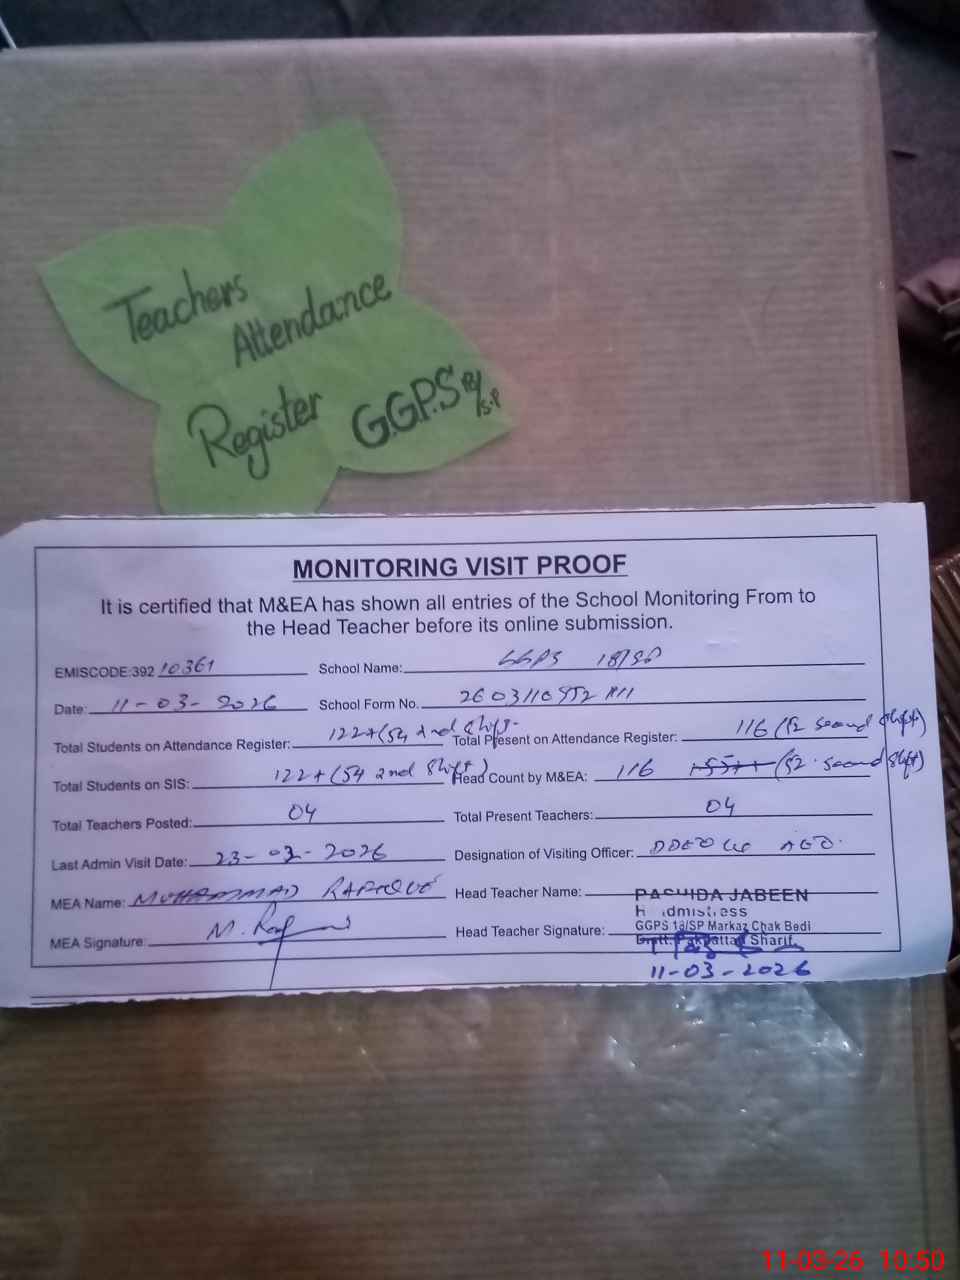 Teachers
Attendance
Register G.G.P.S 18/S.P
MONITORING VISIT PROOF
It is certified that M&EA has shown all entries of the School Monitoring From to
the Head Teacher before its online submission.
EMISCODE:392 10361 School Name: GGPS 18/SP
Date: 11-03-2026 School Form No.
Total Students on Attendance Register: 122+(54 2nd Shift Total Present on Attendance Register: 116 (52 second shift)
Total Students on SIS: 122+(54 2nd Shift) Head Count by M&EA: 116 (52 second shift)
Total Teachers Posted: 04 Total Present Teachers: 04
Last Admin Visit Date: Designation of Visiting Officer:
MEA Name: MUHAMMAD RAFIQUE Head Teacher Name: RASHIDA JABEEN
Headmistress
MEA Signature: M. Head Teacher Signature: GGPS 18/SP Markaz Chak Bedi
Distt: Pakpattan Sharif
11-03-2026
11-03-26 10:50